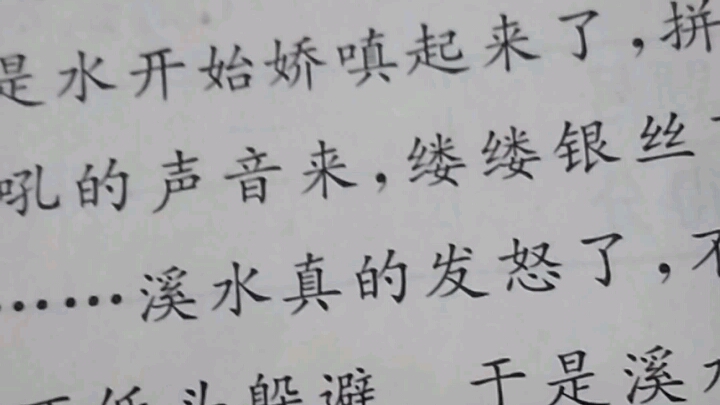 是水开始娇嗔起来了，拼
吼的声音来，缕缕银丝
……溪水真的发怒了，不
低头躲避 于是溪水